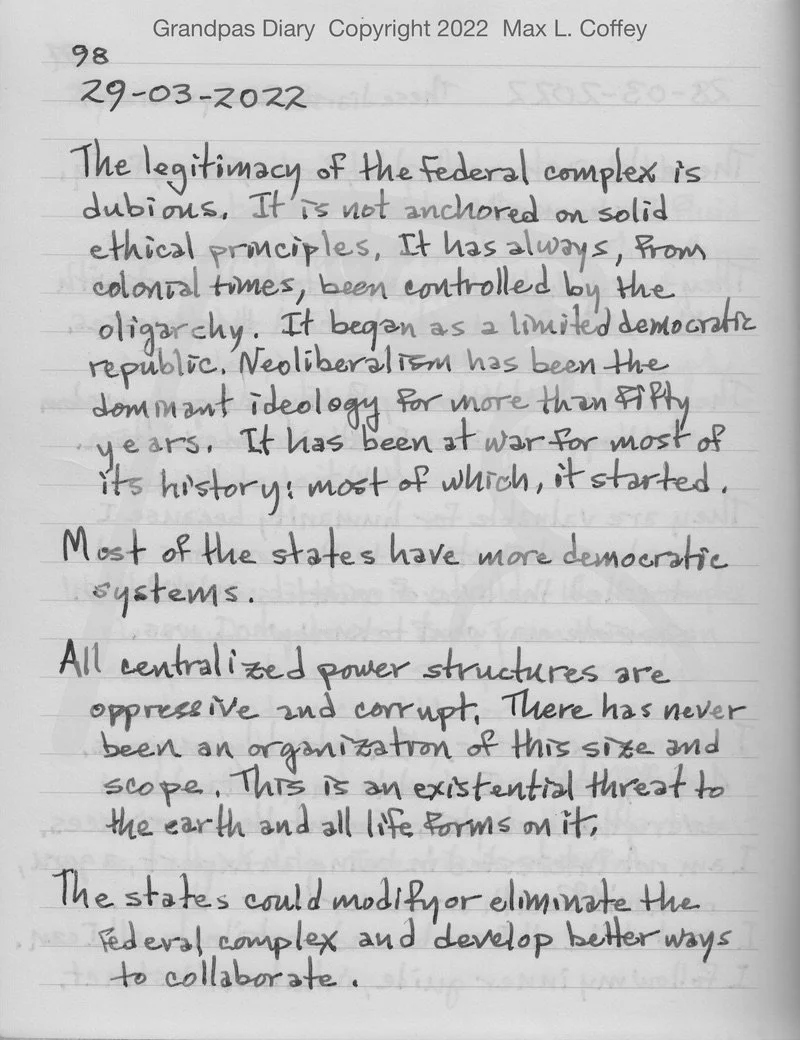 Grandpas Diary Copyright 2022 Max L. Coffey
98
29-03-2022
The legitimacy of the federal complex is
dubious. It is not anchored on solid
ethical principles. It has always, from
colonial times, been controlled by the
oligarchy. It began as a limited democratic
republic. Neoliberalism has been the
dominant ideology for more than fifty
years. It has been at war for most of
its history: most of which, it started.
Most of the states have more democratic
systems.
All centralized power structures are
oppressive and corrupt. There has never
been an organization of this size and
scope. This is an existential threat to
the earth and all life forms on it.
The states could modify or eliminate the
federal complex and develop better ways
to collaborate.